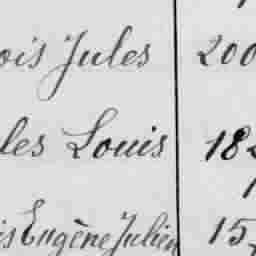 ois Jules 200
les Louis 182
is Eugène Julien 15